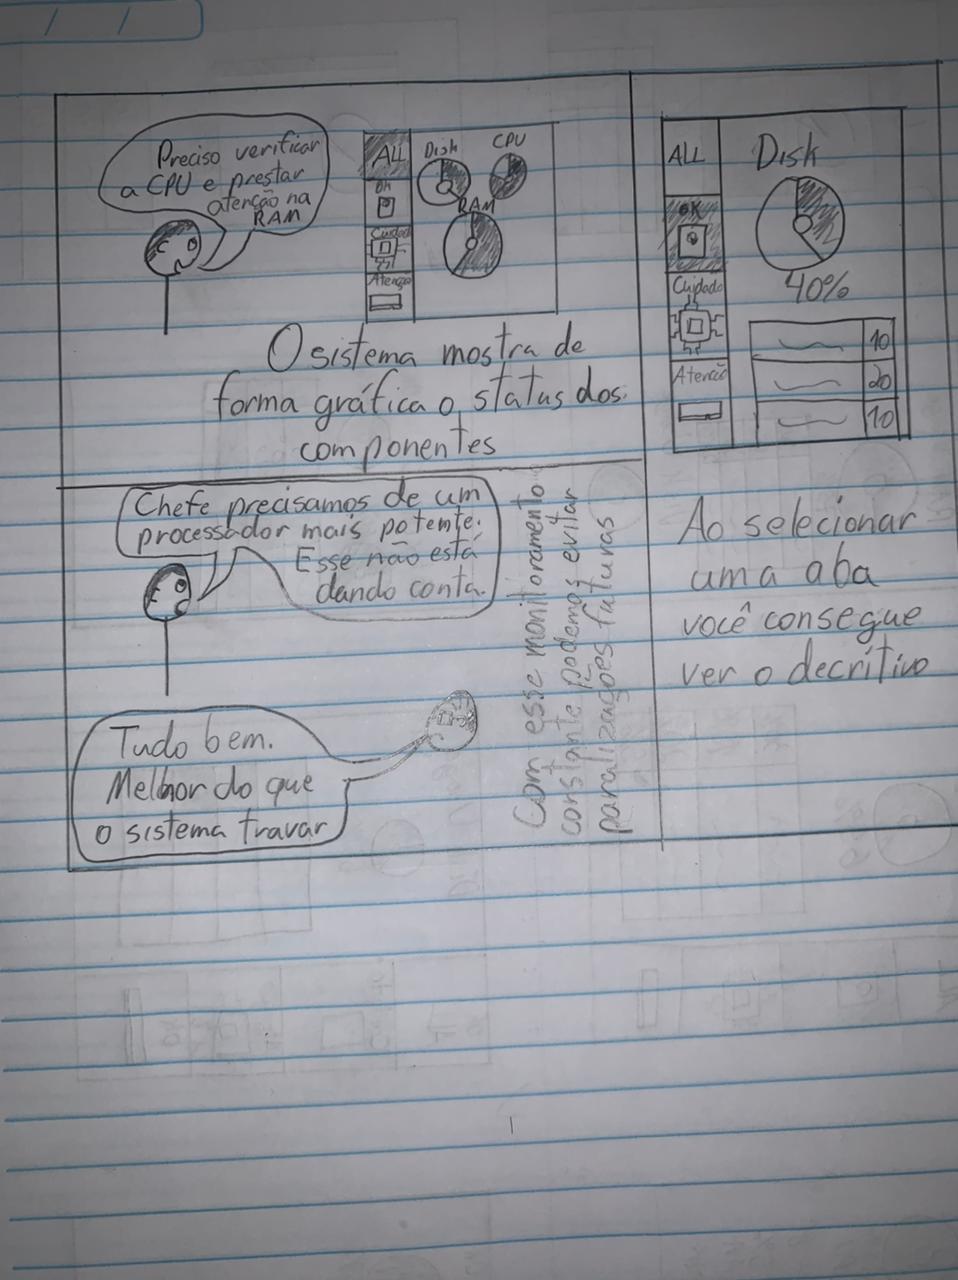 Preciso verificar
a CPU e prestar
atenção na
RAM
ALL
OK
Cuidado
Atenção
Disk
CPU
RAM
O sistema mostra de
forma gráfica o status dos
componentes
ALL
OK
Cuidado
Atenção
Disk
40%
10
20
10
Ao selecionar
uma aba
você consegue
ver o decritivo
Chefe precisamos de um
processador mais potente.
Esse não está
dando conta.
Tudo bem.
Melhor do que
o sistema travar
Com esse monitoramento
constante podemos evitar
paralizações futuras